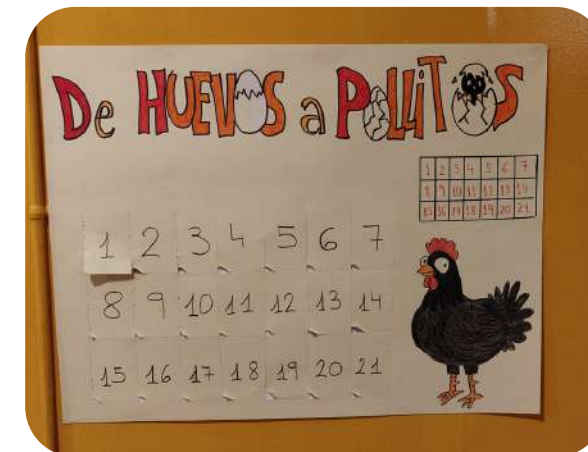 De HUEVOS a POLLiTOS
1 2 3 4 5 6 7
8 9 10 11 12 13 14
15 16 17 18 19 20 21
1 2 3 4 5 6 7
8 9 10 11 12 13 14
15 16 17 18 19 20 21